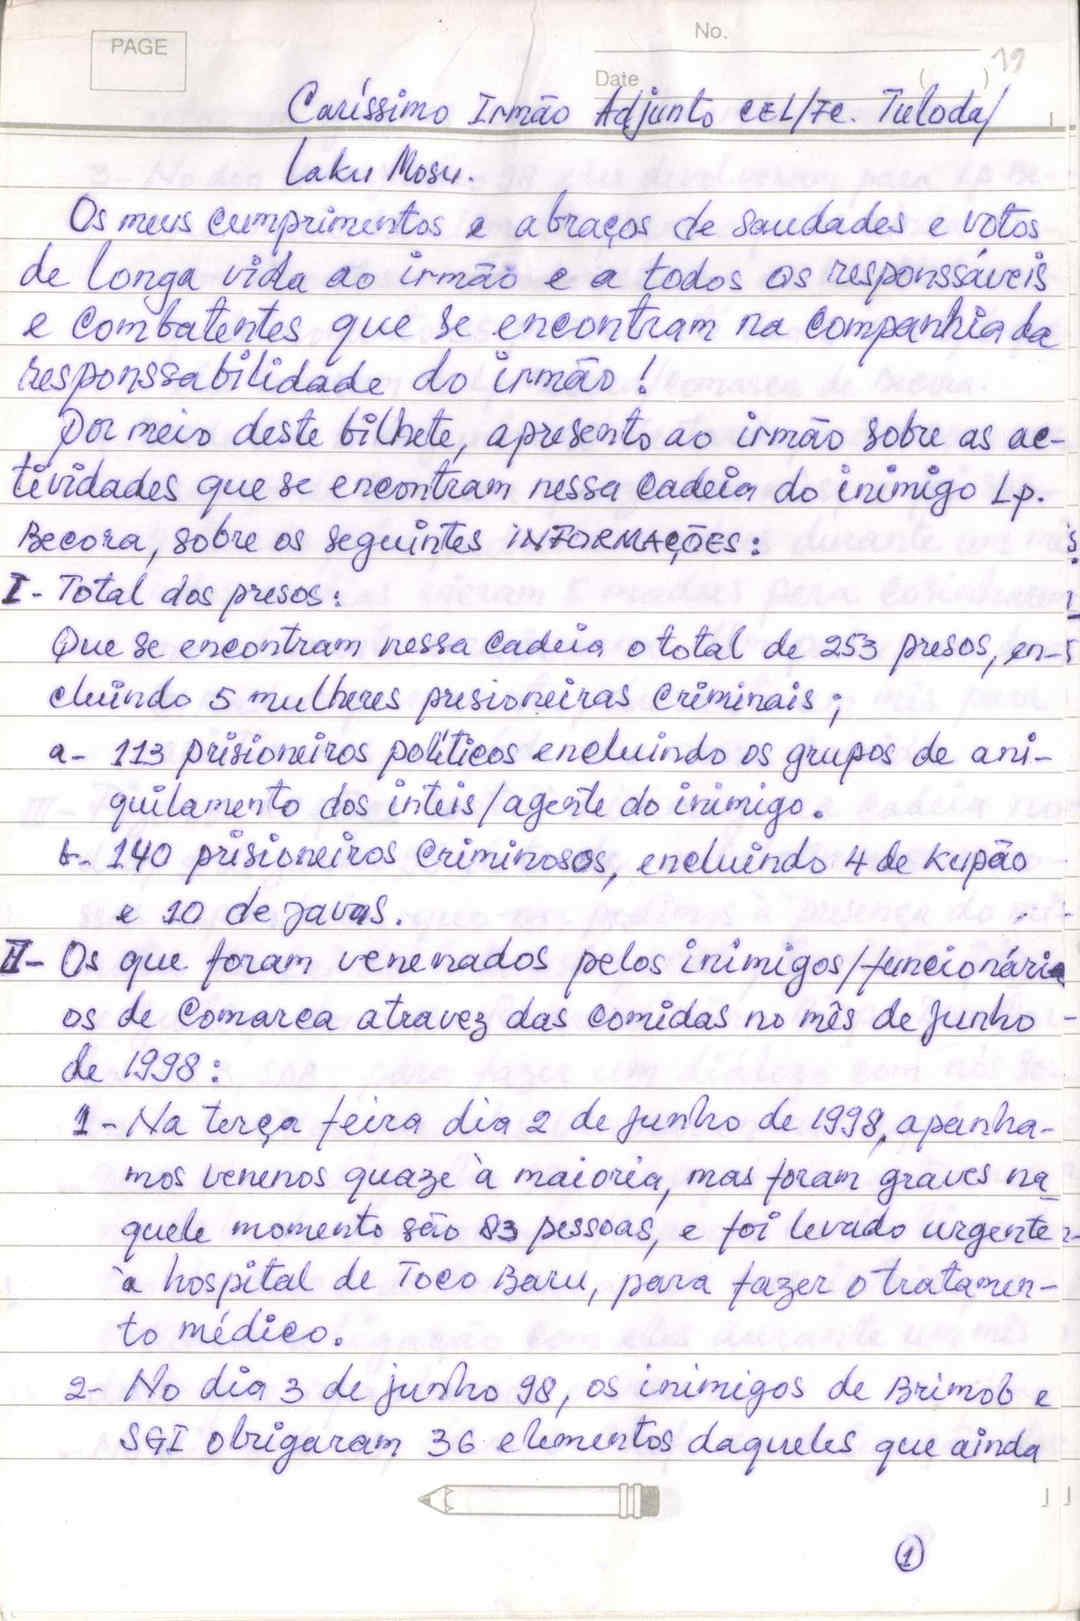 PAGE
No.
19
Date ( )
Caríssimo Irmão Adjunto CEL/FC. Tuloda/
Laku Mosu.
Os meus cumprimentos e abraços de saudades e votos
de longa vida ao irmão e a todos os responssáveis
e combatentes que se encontram na companhia da
responssabilidade do irmão!
Por meio deste bilhete, apresento ao irmão sobre as ac-
tividades que se encontram nessa cadeia do inimigo Lp.
Becora, sobre os seguintes INFORMAÇÕES:
I- Total dos presos:
Que se encontram nessa cadeia o total de 253 presos, en-
cluindo 5 mulheres presioneiras criminais;
a- 113 prisioneiros políticos encluindo os grupos de ani-
quilamento dos inteis/agente do inimigo.
b- 140 prisioneiros criminosos, encluindo 4 de Kupão
e 10 de javas.
II- Os que foram venenados pelos inimigos/funcionári
os de comarca atravez das comidas no mês de Junho
de 1998:
1- Na terça feira dia 2 de Junho de 1998, apanha-
mos venenos quaze à maioria, mas foram graves na
quele momento são 83 pessoas, e foi levado urgente
à hospital de Toco Baru, para fazer o tratamen-
to médico.
2- No dia 3 de junho 98, os inimigos de Brimob e
SGI obrigaram 36 elementos daqueles que ainda
1